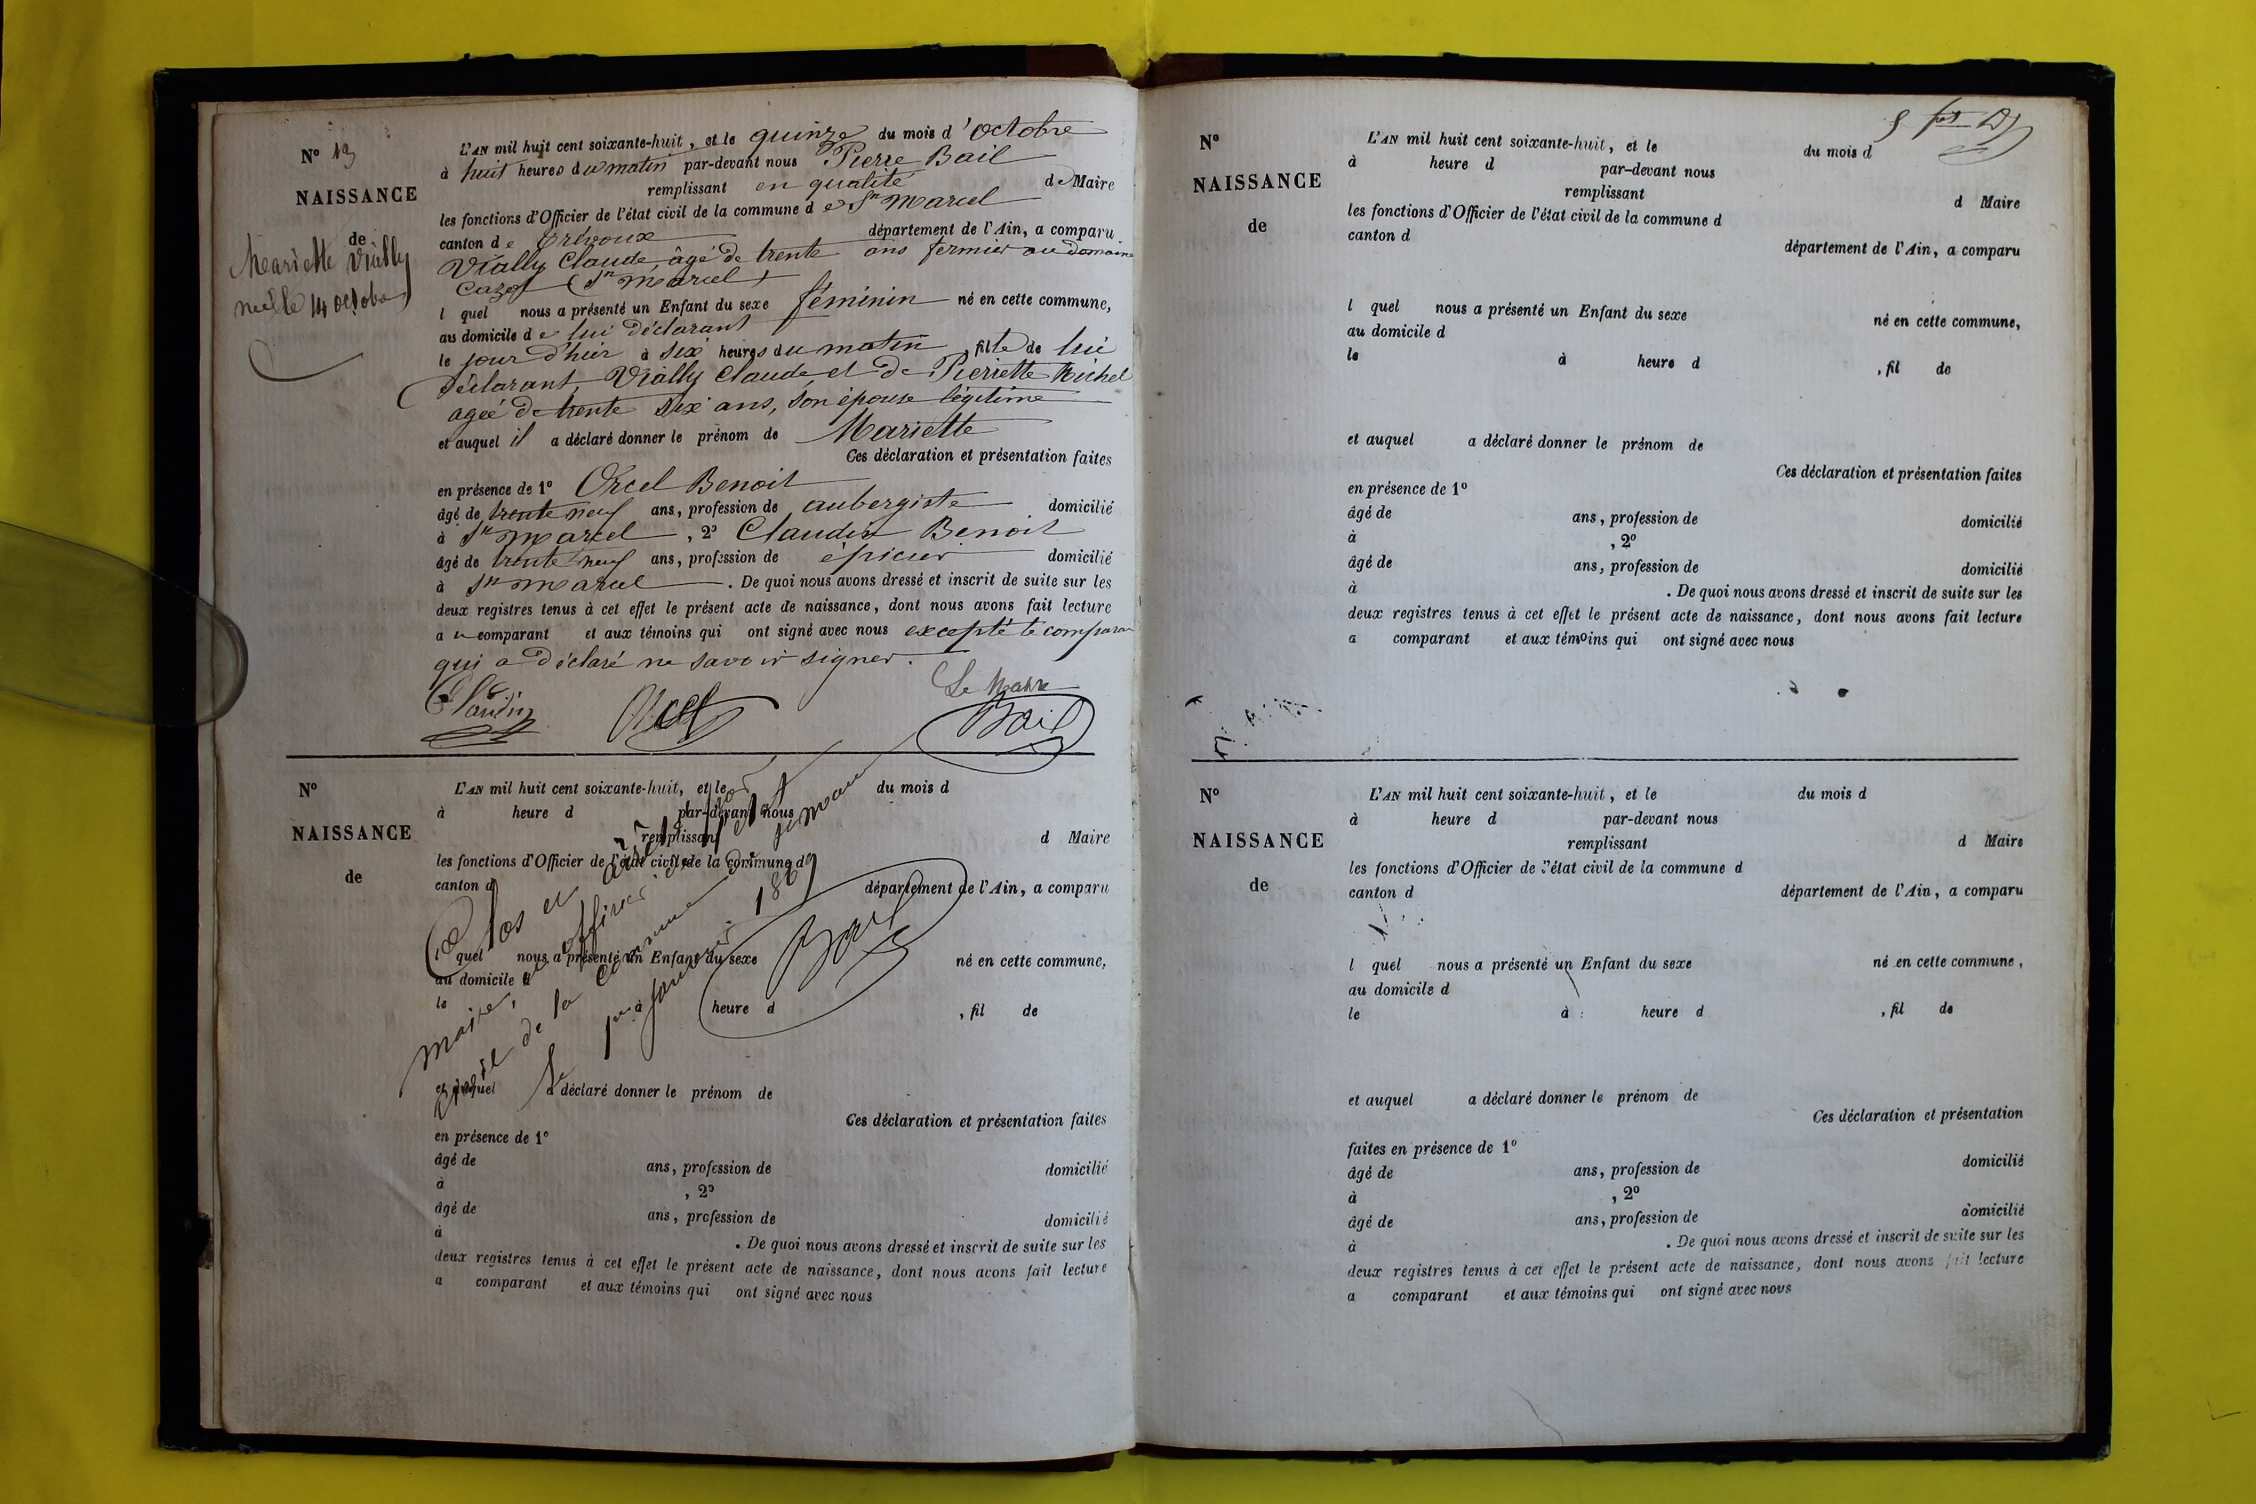 N° 13
NAISSANCE
de
Mariette Vially
née le 14 octobre
L'AN mil huit cent soixante-huit, et le quinze du mois d'octobre
à huit heures du matin par-devant nous Pierre Bail
remplissant en qualité de Maire
les fonctions d'Officier de l'état civil de la commune de St Marcel
canton de Trévoux département de l'Ain, a comparu
Vially Claude âgé de trente ans fermier au domaine
(St Marcel)
l quel nous a présenté un Enfant du sexe féminin né en cette commune,
au domicile de lui déclarant
le jour d'hier à six heures du matin, fille de lui
déclarant Vially Claude et de Pierrette Michel
agée de trente six ans, son épouse légitime
et auquel il a déclaré donner le prénom de Mariette
Ces déclaration et présentation faites
en présence de 1° Orcel Benoit
âgé de trente neuf ans, profession de aubergiste domicilié
à St Marcel, 2° Claudin Benoit
âgé de trente neuf ans, profession de épicier domicilié
à St Marcel. De quoi nous avons dressé et inscrit de suite sur les
deux registres tenus à cet effet le présent acte de naissance, dont nous avons fait lecture
au comparant et aux témoins qui ont signé avec nous excepté le comparant
qui a déclaré ne savoir signer.
Le Maire
Claudin Orcel Bail
N°
NAISSANCE
de
L'AN mil huit cent soixante-huit, et le du mois d
à heure d par-devant nous
remplissant d Maire
les fonctions d'Officier de l'état civil de la commune d
canton d département de l'Ain, a comparu
l quel nous a présenté un Enfant du sexe né en cette commune,
au domicile d
le à heure d , fil de
et auquel a déclaré donner le prénom de
Ces déclaration et présentation faites
en présence de 1°
âgé de ans, profession de domicilié
à , 2°
âgé de ans, profession de domicilié
à . De quoi nous avons dressé et inscrit de suite sur les
deux registres tenus à cet effet le présent acte de naissance, dont nous avons fait lecture
a comparant et aux témoins qui ont signé avec nous
Clos et arrêté par
maire, officier de l'état
civil de la commune de St Marcel
le 1er janvier 1869
Bail
N°
NAISSANCE
de
L'AN mil huit cent soixante-huit, et le du mois d
à heure d par-devant nous
remplissant d Maire
les fonctions d'Officier de l'état civil de la commune d
canton d département de l'Ain, a comparu
l quel nous a présenté un Enfant du sexe né en cette commune,
au domicile d
le à heure d , fil de
et auquel a déclaré donner le prénom de
Ces déclaration et présentation faites
en présence de 1°
âgé de ans, profession de domicilié
à , 2°
âgé de ans, profession de domicilié
à . De quoi nous avons dressé et inscrit de suite sur les
deux registres tenus à cet effet le présent acte de naissance, dont nous avons fait lecture
a comparant et aux témoins qui ont signé avec nous
N°
NAISSANCE
de
L'AN mil huit cent soixante-huit, et le du mois d
à heure d par-devant nous
remplissant d Maire
les fonctions d'Officier de l'état civil de la commune d
canton d département de l'Ain, a comparu
l quel nous a présenté un Enfant du sexe né en cette commune,
au domicile d
le à heure d , fil de
et auquel a déclaré donner le prénom de
Ces déclaration et présentation
faites en présence de 1°
âgé de ans, profession de domicilié
à , 2°
âgé de ans, profession de domicilié
à . De quoi nous avons dressé et inscrit de suite sur les
deux registres tenus à cet effet le présent acte de naissance, dont nous avons fait lecture
a comparant et aux témoins qui ont signé avec nous